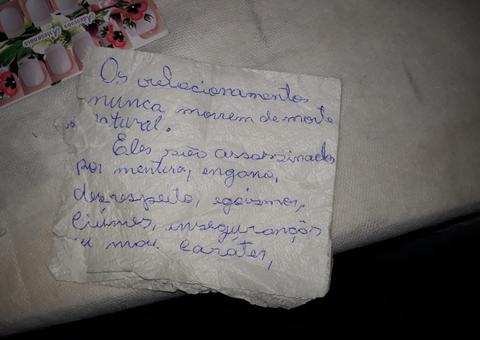 Adesivos Artesanais
Os relacionamentos
nunca morrem de morte
natural.
Eles são assassinados
por mentira, engano,
desrespeito, egoísmos,
ciúmes, inseguranças
e mau caráter,